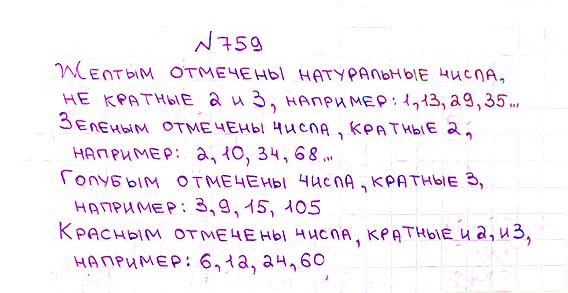 №759
Желтым отмечены натуральные числа,
не кратные 2 и 3, например: 1,13,29,35...
Зеленым отмечены числа, кратные 2,
например: 2, 10, 34, 68...
Голубым отмечены числа, кратные 3,
например: 3, 9, 15, 105
Красным отмечены числа, кратные и 2, и 3,
например: 6, 12, 24, 60